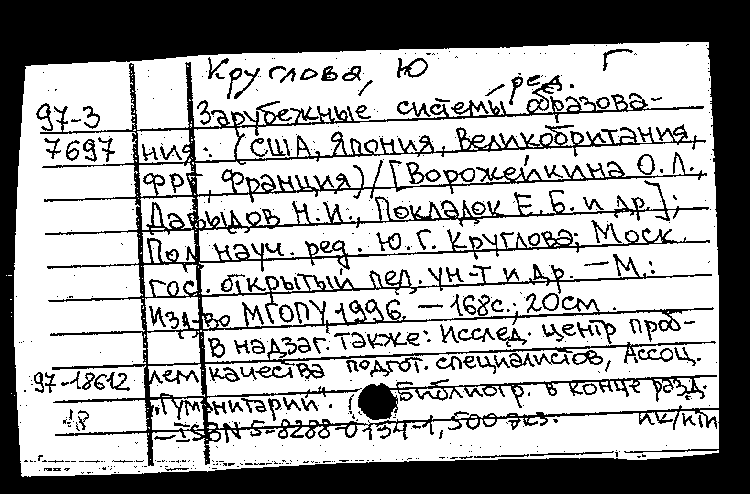 Круглова, Ю Г
ред.
97-3 Зарубежные системы образова-
7697 ния: (США, Япония, Великобритания,
ФРГ, Франция) / [Ворожейкина О.Л.,
Давыдов Н.И., Покладок Е.Б. и др.];
Под науч. ред. Ю.Г. Круглова; Моск.
гос. открытый пед. ун-т и др. — М.:
Изд-во МГОПУ, 1996. — 168с.; 20см.
В надзаг. также: Исслед. центр проб-
97-18612 лем качества подгот. специалистов, Ассоц.
18 "Гуманитарий". Библиогр. в конце разд.
— ISBN 5-8288-0134-1, 500 экз. ПК/КТП